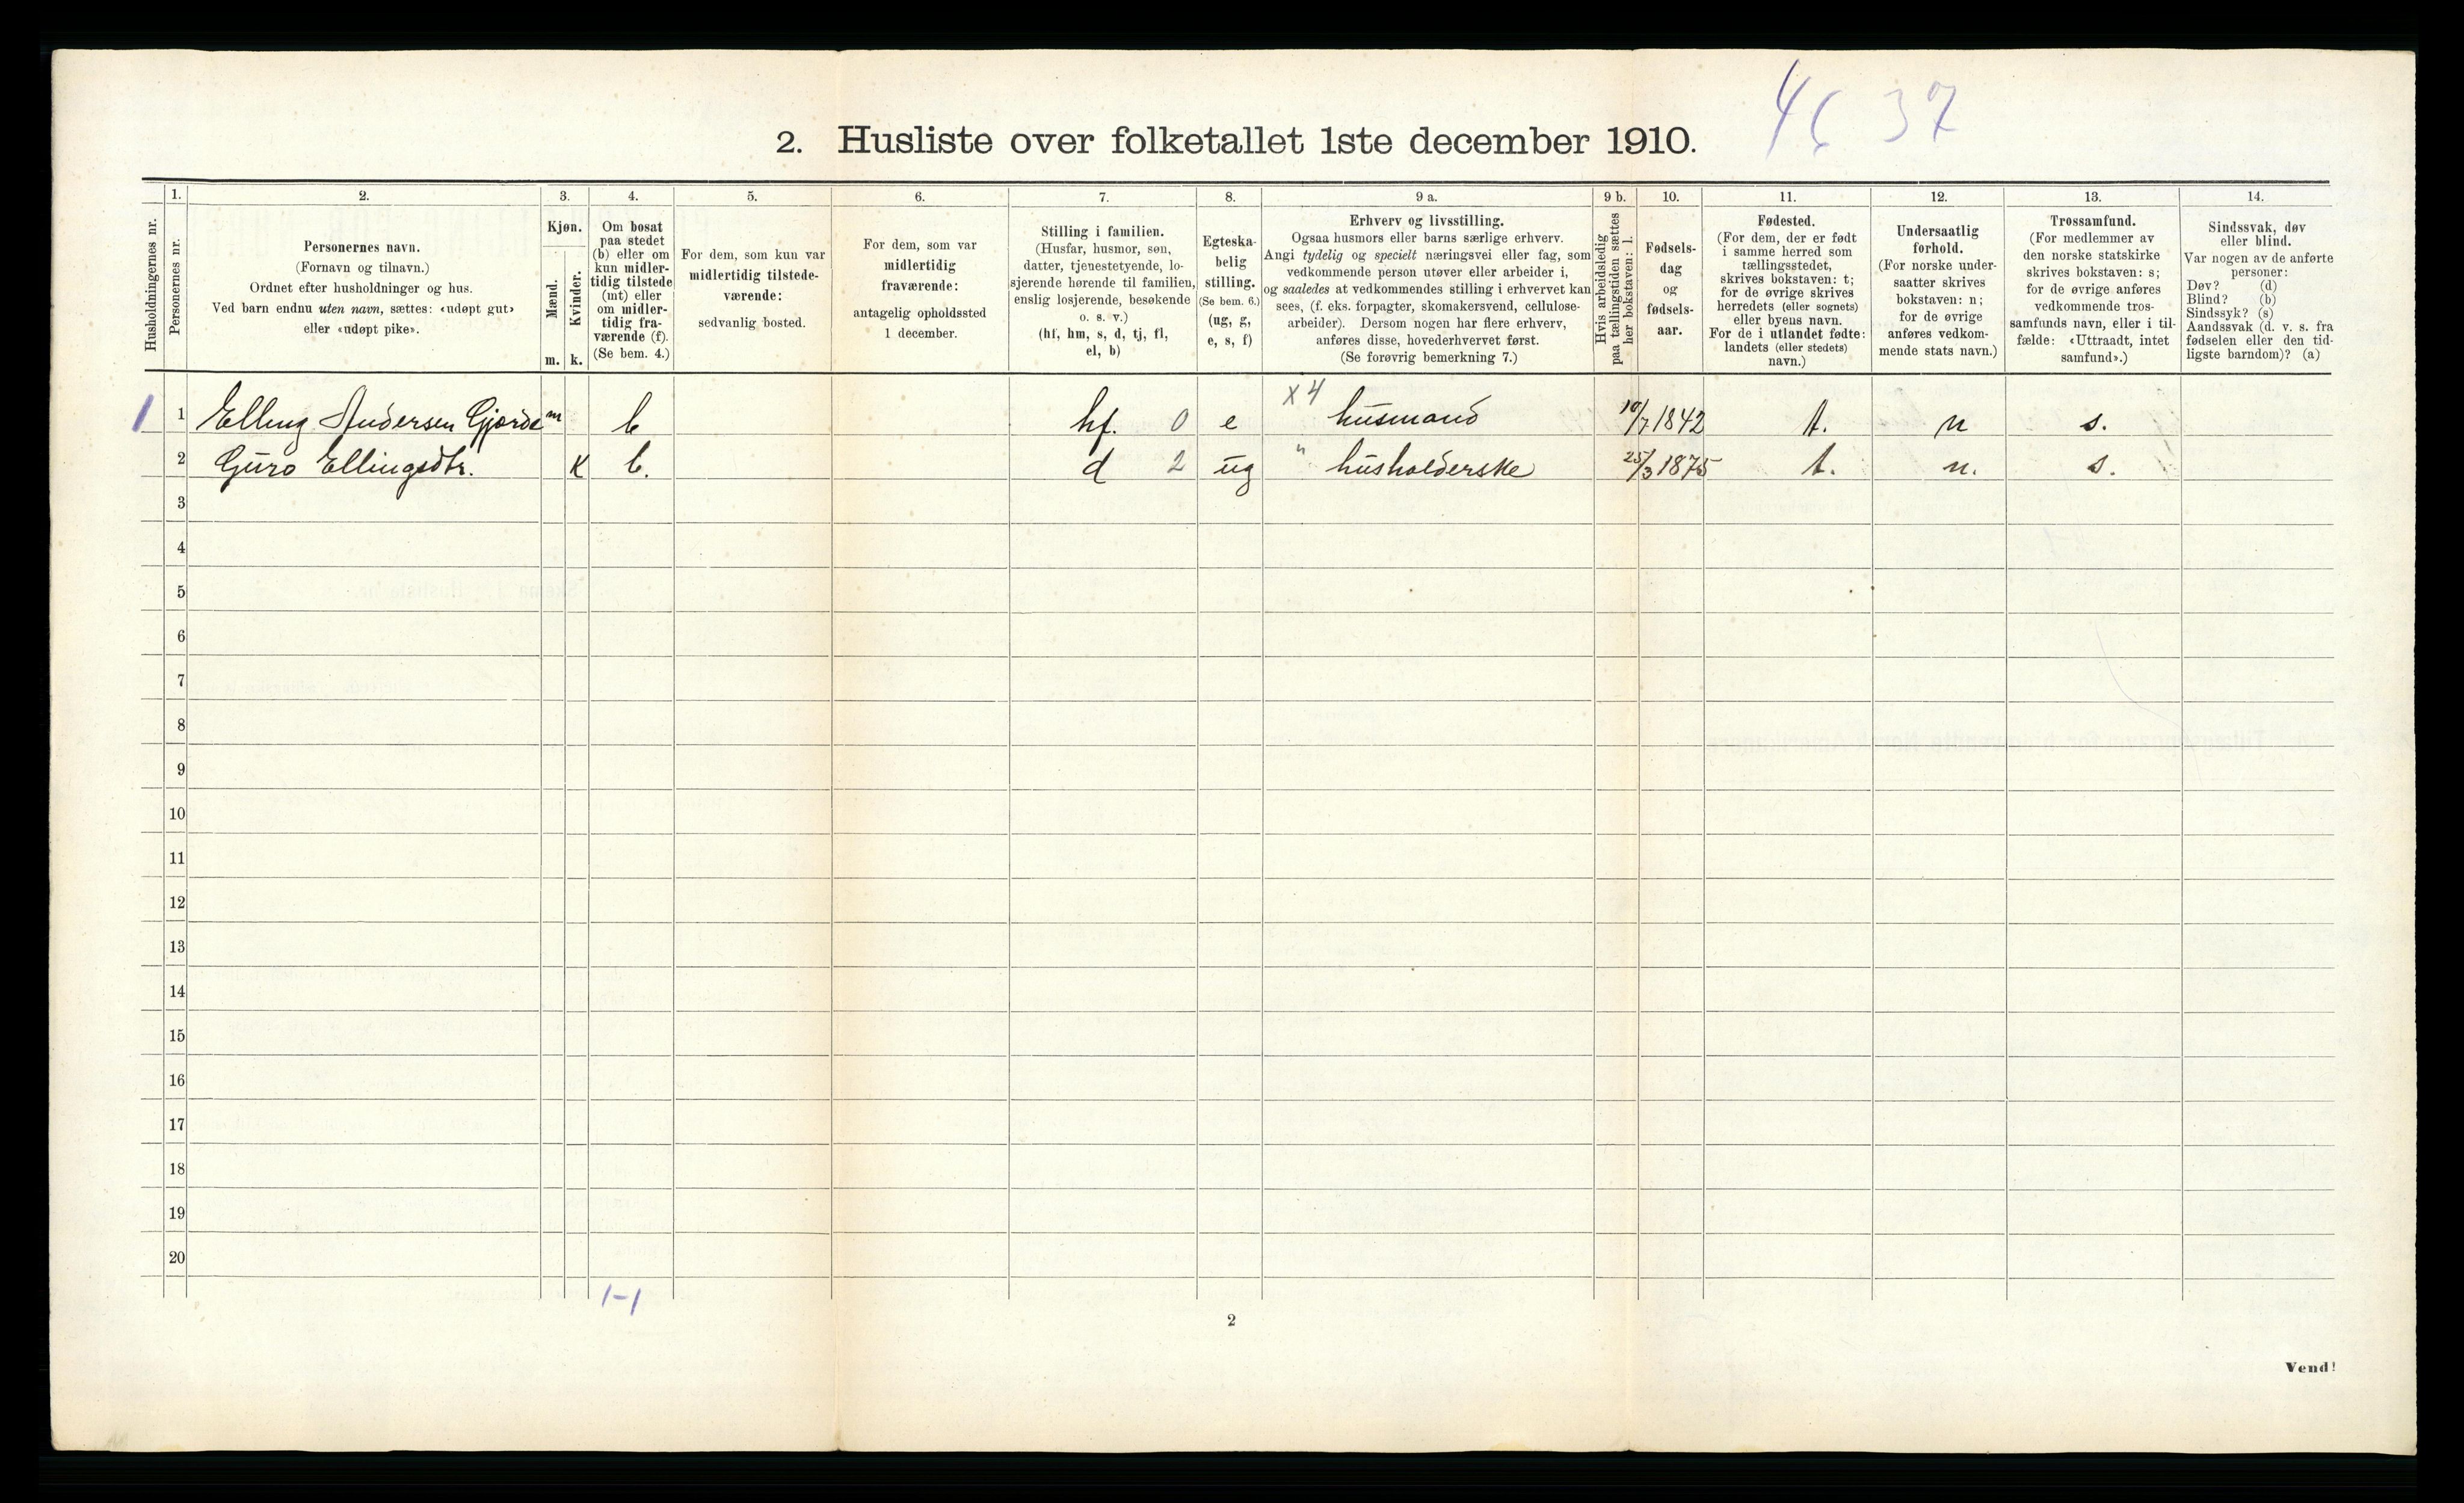 46 37
2. Husliste over folketallet 1ste december 1910.
1. 2. 3. 4. 5. 6. 7. 8. 9 a. 9 b. 10. 11. 12. 13. 14.
Husholdningernes nr.
Personernes nr.
Personernes navn.
(Fornavn og tilnavn.)
Ordnet efter husholdninger og hus.
Ved barn endnu uten navn, sættes: «udøpt gut»
eller «udøpt pike».
Kjøn.
Mænd.
Kvinder.
m. k.
Om bosat
paa stedet
(b) eller om
kun midler-
tidig tilstede
(mt) eller
om midler-
tidig fra-
værende (f).
(Se bem. 4.)
For dem, som kun var
midlertidig tilstede-
værende:
sedvanlig bosted.
For dem, som var
midlertidig
fraværende:
antagelig opholdssted
1 december.
Stilling i familien.
(Husfar, husmor, søn,
datter, tjenestetyende, lo-
sjerende hørende til familien,
enslig losjerende, besøkende
o. s. v.)
(hf, hm, s, d, tj, fl,
el, b)
Egteska-
belig
stilling.
(Se bem. 6.)
(ug, g,
e, s, f)
Erhverv og livsstilling.
Ogsaa husmors eller barns særlige erhverv.
Angi tydelig og specielt næringsvei eller fag, som
vedkommende person utøver eller arbeider i,
og saaledes at vedkommendes stilling i erhvervet kan
sees, (f. eks. forpagter, skomakersvend, cellulose-
arbeider). Dersom nogen har flere erhverv,
anføres disse, hovederhvervet først.
(Se forøvrig bemerkning 7.)
Hvis arbeidsledig
paa tællingstiden sættes
her bokstaven: l.
Fødsels-
dag
og
fødsels-
aar.
Fødested.
(For dem, der er født
i samme herred som
tællingsstedet,
skrives bokstaven: t;
for de øvrige skrives
herredets (eller sognets)
eller byens navn.
For de i utlandet fødte:
landets (eller stedets)
navn.)
Undersaatlig
forhold.
(For norske under-
saatter skrives
bokstaven: n;
for de øvrige
anføres vedkom-
mende stats navn.)
Trossamfund.
(For medlemmer av
den norske statskirke
skrives bokstaven: s;
for de øvrige anføres
vedkommende tros-
samfunds navn, eller i til-
fælde: «Uttraadt, intet
samfund».)
Sindssvak, døv
eller blind.
Var nogen av de anførte
personer:
Døv? (d)
Blind? (b)
Sindssyk? (s)
Aandssvak (d. v. s. fra
fødselen eller den tid-
ligste barndom)? (a)
1 1 Elling Andersen Gjørde m b hf. 0 e x4 husmand 10/7 1842 t. n s.
2 Guro Ellingsdtr. k b. d 2 ug " husholderske 25/3 1875 t. n. s.
3
4
5
6
7
8
9
10
11
12
13
14
15
16
17
18
19
20
1-1
2
Vend!